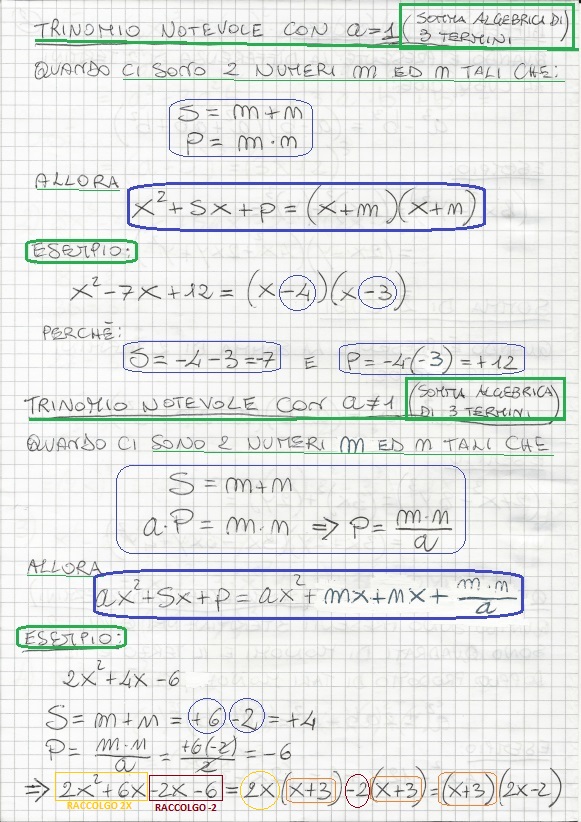 TRINOMIO NOTEVOLE CON a=1 (SOMMA ALGEBRICA DI 3 TERMINI)
QUANDO CI SONO 2 NUMERI m ED n TALI CHE:
S = m+n
P = m·n
ALLORA
x²+Sx+P = (x+m)(x+n)
ESEMPIO:
x²-7x+12 = (x-4)(x-3)
PERCHÈ:
S=-4-3=-7 E P=-4(-3)=+12
TRINOMIO NOTEVOLE CON a≠1 (SOMMA ALGEBRICA DI 3 TERMINI)
QUANDO CI SONO 2 NUMERI m ED n TALI CHE
S = m+n
a·P = m·n ⇒ P = m·n/a
ALLORA
ax²+Sx+P = ax²+mx+nx+ m·n/a
ESEMPIO:
2x²+4x-6
S = m+n = +6-2 = +4
P = m·n/a = +6(-2)/2 = -6
⇒ 2x²+6x-2x-6 = 2x(x+3)-2(x+3) = (x+3)(2x-2)
RACCOLGO 2X RACCOLGO -2